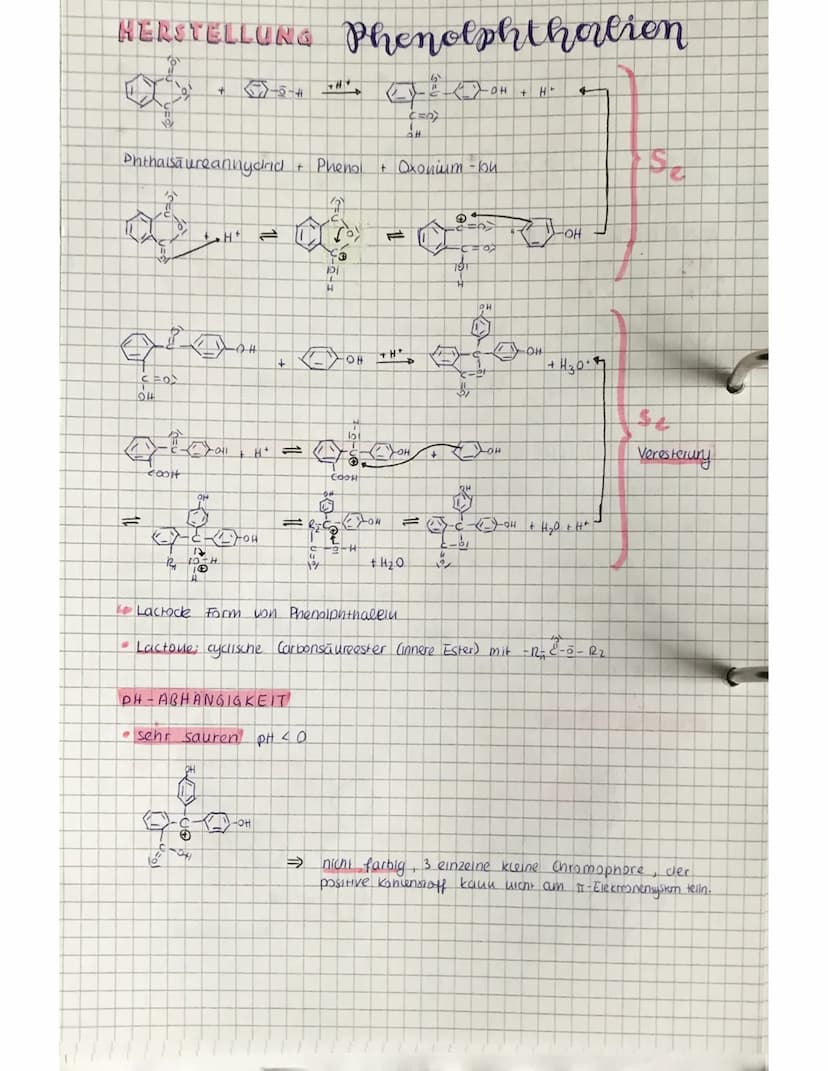 HERSTELLUNG Phenolphthalien
+ -O-H +H⁺ -OH + H⁺
Phthalsäureanhydrid + Phenol + Oxonium-Ion
SE
+ H⁺ ⇌ ⇌ + -OH
-OH + -OH +H⁺ -OH + H₃O⁺
-OH + H⁺ ⇌ -OH + -OH
COOH COOH
SE
Veresterung
⇌ -OH ⇌ -OH + H₂O ⇌ -OH + H₂O + H⁺
↳ Lactode Form von Phenolphthalein
• Lactone: cyclische Carbonsäureester (innere Ester) mit -R₁-C-O-R₂
PH-ABHÄNGIGKEIT
• sehr sauren pH < 0
OH
-C- -OH
C-OH
⇒ nicht farbig, 3 einzelne kleine Chromophore, der
positive Kohlenstoff kann nicht am π-Elektronensystem teiln.